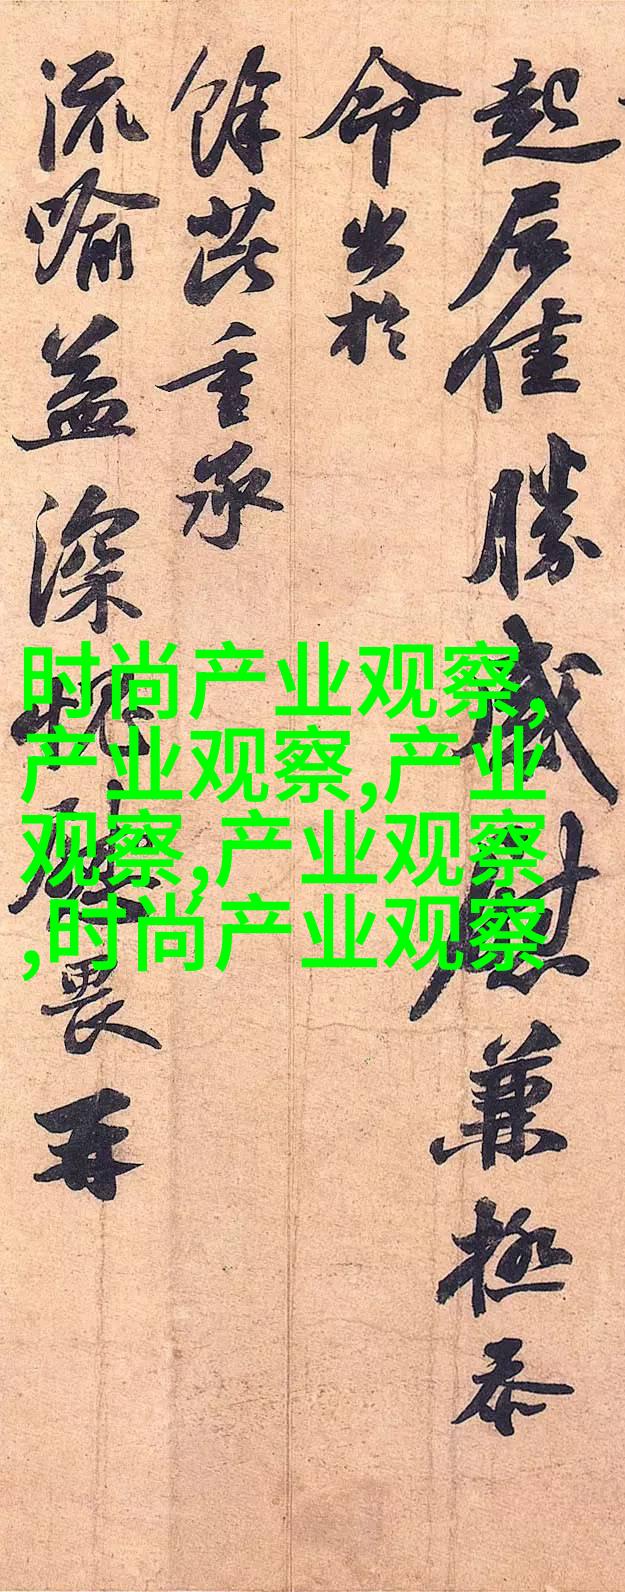 起居佳勝感慰兼極忝
命出於
餘芘重承
流喻益深愧畏再
时尚产业观察,
产业观察,产业
观察,产业观察
,时尚产业观察